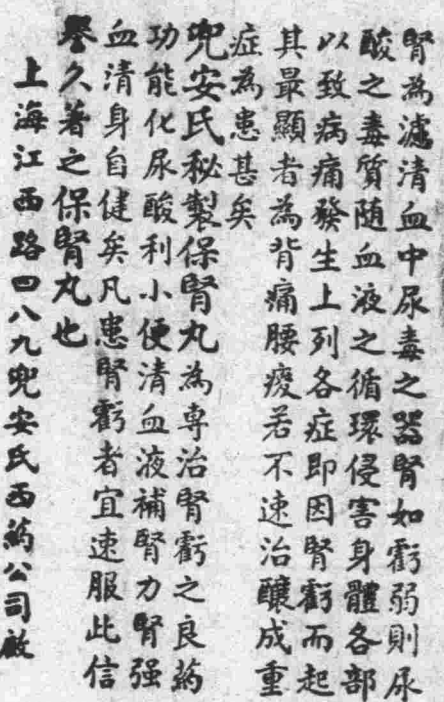 腎為濾清血中尿毒之器腎如虧弱則尿
酸之毒質随血液之循環侵害身體各部
以致病痛發生上列各症即因腎虧而起
其最顯者為背痛腰痠若不速治釀成重
症為患甚矣
兜安氏秘製保腎丸為専治腎虧之良药
功能化尿酸利小便清血液補腎力腎强
血清身自健矣凡患腎虧者宜速服此信
譽久著之保腎丸也
上海江西路四八九兜安氏西药公司啟